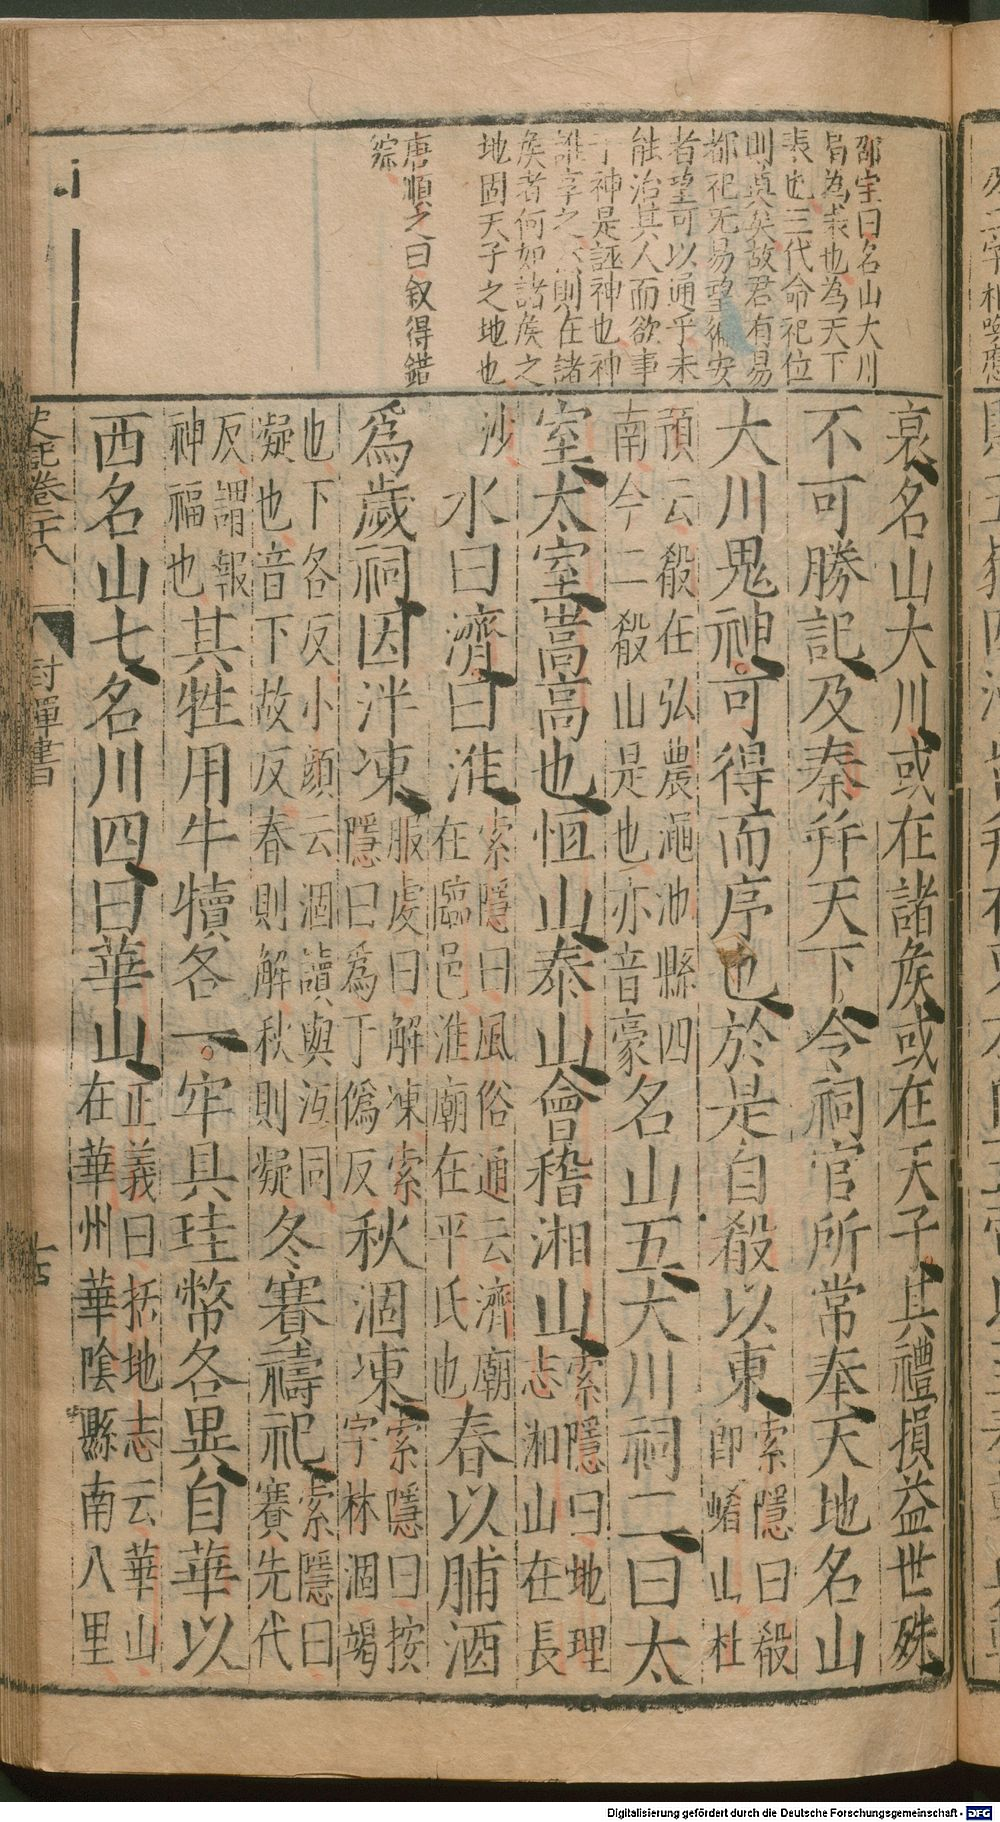 邵宝曰名山大川
皆為衰也為天下
表也三代命祀位
則奠矣故君有易
都祀无易望術安
者望可以通乎未
能治其人而欲事
于神是誣神也神
誰享之 則在諸
矦者何如諸矦之
地固天子之地也
唐順之曰叙得錯
綜
哀名山大川或在諸矦或在天子其禮損益世殊
不可勝記及秦并天下令祠官所常奉天地名山
大川鬼神可得而序也於是自殽以東索隱曰殽即崤山杜
預云殽在弘農澠池縣四南今二殽山是也亦音豪名山五大川祠二曰太
室太室嵩高也恒山泰山會稽湘山索隱曰地理志湘山在長
沙水曰濟曰淮索隱曰風俗通云濟廟在臨邑淮廟在平氏也春以脯酒
爲歲祠因泮凍服虔曰解凍索隱曰爲丁僞反秋涸凍索隱曰按字林涸竭
也下各反小顔云涸讀與沍同凝也音下故反春則解秋則凝冬賽禱祀索隱曰賽先代
反謂報神福也其牲用牛犢各一牢具珪幣各異自華以
西名山七名川四曰華山正義曰括地志云華山在華州華陰縣南八里
史記卷二十八
封禪書
Digitalisierung gefördert durch die Deutsche Forschungsgemeinschaft - DFG